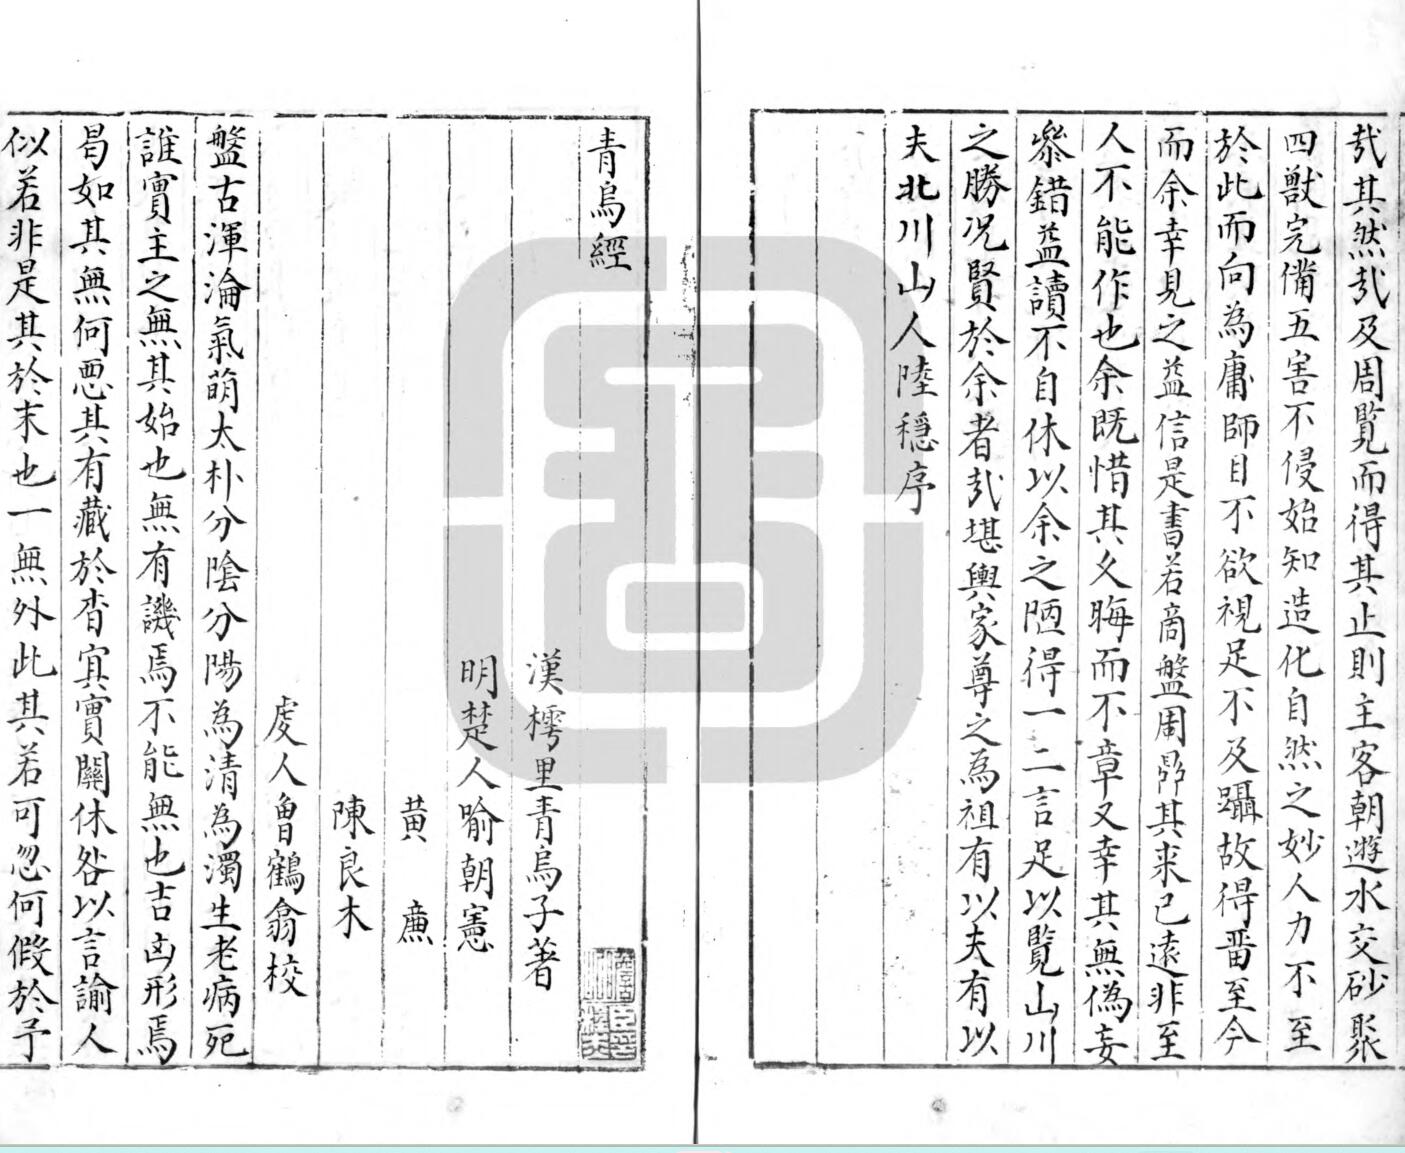 哉其然哉及周覧而得其止則主客朝遊水交砂聚
四獸完備五害不侵始知造化自然之妙人力不至
於此而向為庸師目不欲視足不及躡故得畱至今
而余幸見之益信是書若商盤周鼎其来已遠非至
人不能作也余既惜其久晦而不章又幸其無偽妄
叅錯益讀不自休以余之陋得一二言足以覧山川
之勝况賢於余者哉堪輿家尊之為祖有以夫有以
夫北川山人陸穩序
青烏經
漢樗里青烏子著
明楚人喻朝憲
黃 𢊍
陳良木
䖍人曾鶴翕校
盤古渾淪氣萌太朴分陰分陽為清為濁生老病死
誰實主之無其始也無有譏焉不能無也吉凶形焉
曷如其無何惡其有藏於杳㝠實關休咎以言諭人
似若非是其於末也一無外此其若可忽何假於予